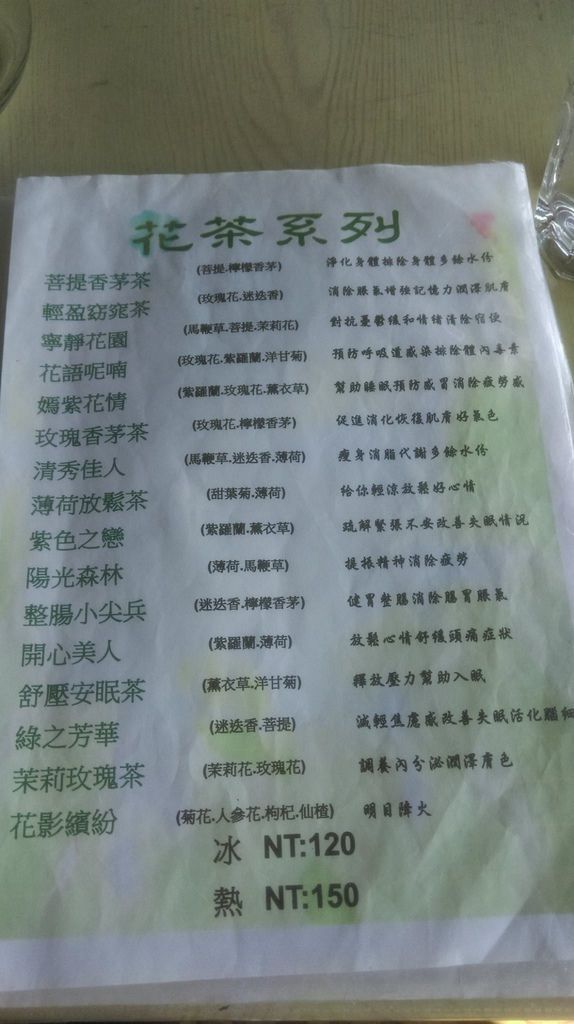 花茶系列
菩提香茅茶 (菩提.檸檬香茅) 淨化身體排除身體多餘水份
輕盈窈窕茶 (玫瑰花.迷迭香) 消除脹氣增強記憶力潤澤肌膚
寧靜花園 (馬鞭草.菩提.茉莉花) 對抗憂鬱緩和情緒清除宿便
花語呢喃 (玫瑰花.紫羅蘭.洋甘菊) 預防呼吸道感染排除體內毒素
嫣紫花情 (紫羅蘭.玫瑰花.薰衣草) 幫助睡眠預防感冒消除疲勞感
玫瑰香茅茶 (玫瑰花.檸檬香茅) 促進消化恢復肌膚好氣色
清秀佳人 (馬鞭草.迷迭香.薄荷) 瘦身消脂代謝多餘水份
薄荷放鬆茶 (甜葉菊.薄荷) 給你輕涼放鬆好心情
紫色之戀 (紫羅蘭.薰衣草) 疏解緊張不安改善失眠情況
陽光森林 (薄荷.馬鞭草) 提振精神消除疲勞
整腸小尖兵 (迷迭香.檸檬香茅) 健胃整腸消除腸胃脹氣
開心美人 (紫羅蘭.薄荷) 放鬆心情舒緩頭痛症狀
舒壓安眠茶 (薰衣草.洋甘菊) 釋放壓力幫助入眠
綠之芳華 (迷迭香.菩提) 減輕焦慮感改善失眠活化腦細
茉莉玫瑰茶 (茉莉花.玫瑰花) 調養內分泌潤澤膚色
花影繽紛 (菊花.人參花.枸杞.仙楂) 明目降火
冰 NT:120
熱 NT:150